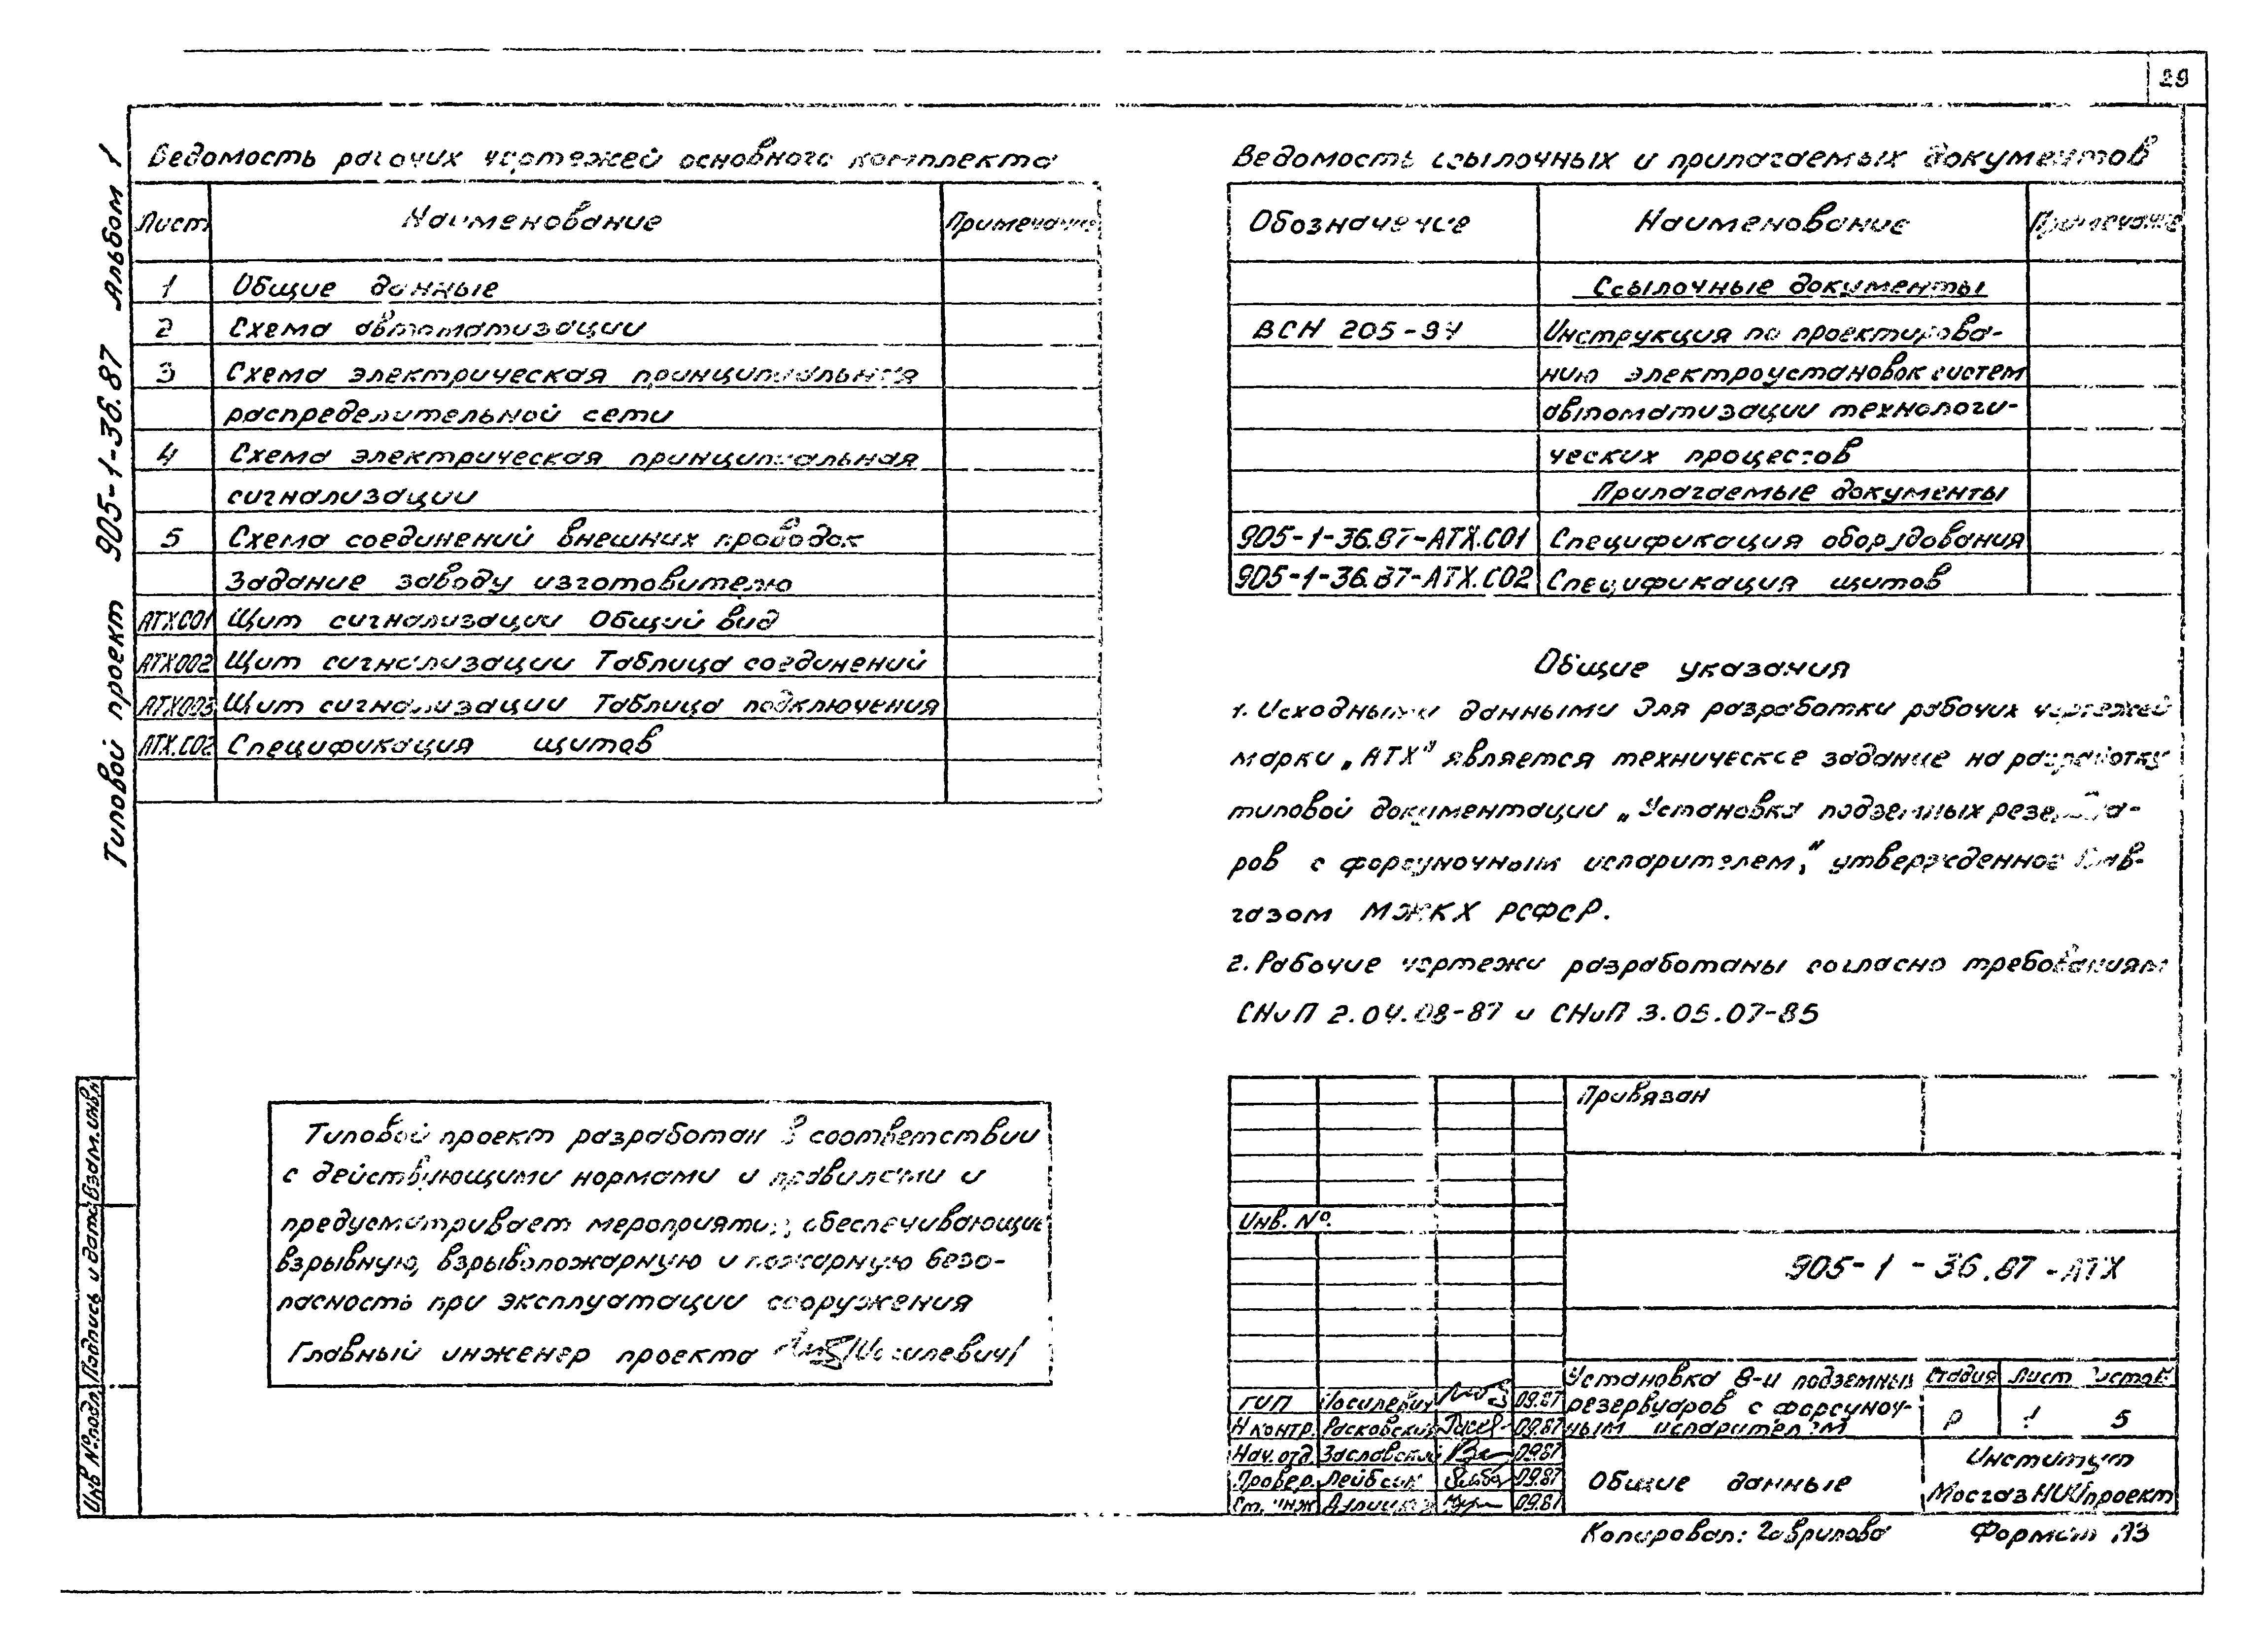 29
Типовой проект 905-1-36.87 Альбом 1
Ведомость рабочих чертежей основного комплекта
Лист Наименование Примечание
1 Общие данные
2 Схема автоматизации
3 Схема электрическая принципиальная
распределительной сети
4 Схема электрическая принципиальная
сигнализации
5 Схема соединений внешних проводок
Задание заводу изготовителю
АТХ001 Щит сигнализации Общий вид
АТХ002 Щит сигнализации Таблица соединений
АТХ003 Щит сигнализации Таблица подключения
АТХ.СО2 Спецификация щитов
Ведомость ссылочных и прилагаемых документов
Обозначение Наименование Примечание
Ссылочные документы
ВСН 205-84 Инструкция по проектирова-
нию электроустановок систем
автоматизации технологи-
ческих процессов
Прилагаемые документы
905-1-36.87-АТХ.СО1 Спецификация оборудования
905-1-36.87-АТХ.СО2 Спецификация щитов
Общие указания
1. Исходными данными для разработки рабочих чертежей
марки „АТХ" является техническое задание на разработку
типовой документации „Установка подземных резервуа-
ров с форсуночным испарителем," утвержденное Глав-
газом МЖКХ РСФСР.
2. Рабочие чертежи разработаны согласно требованиям
СНиП 2.04.08-87 и СНиП 3.05.07-85
Типовой проект разработан в соответствии
с действующими нормами и правилами и
предусматривает мероприятия, обеспечивающие
взрывную, взрывопожарную и пожарную безо-
пасность при эксплуатации сооружения
Главный инженер проекта /Иосилевич/
Привязан
Инв. №
905-1-36.87-АТХ
Установка 8-и подземных
резервуаров с форсуноч-
ным испарителем
Стадия Лист Листов
Р 1 5
ГИП Иосилевич 09.87
Н контр. Расковский 09.87
Нач. отд. Заславский 09.87
Провер. Лейбсон 09.87
Ст. инж 09.87
Общие данные
Институт
МосгазНИИпроект
Копировал: Гаврилова Формат А3
Инв № подл. Подпись и дата Взам. инв.